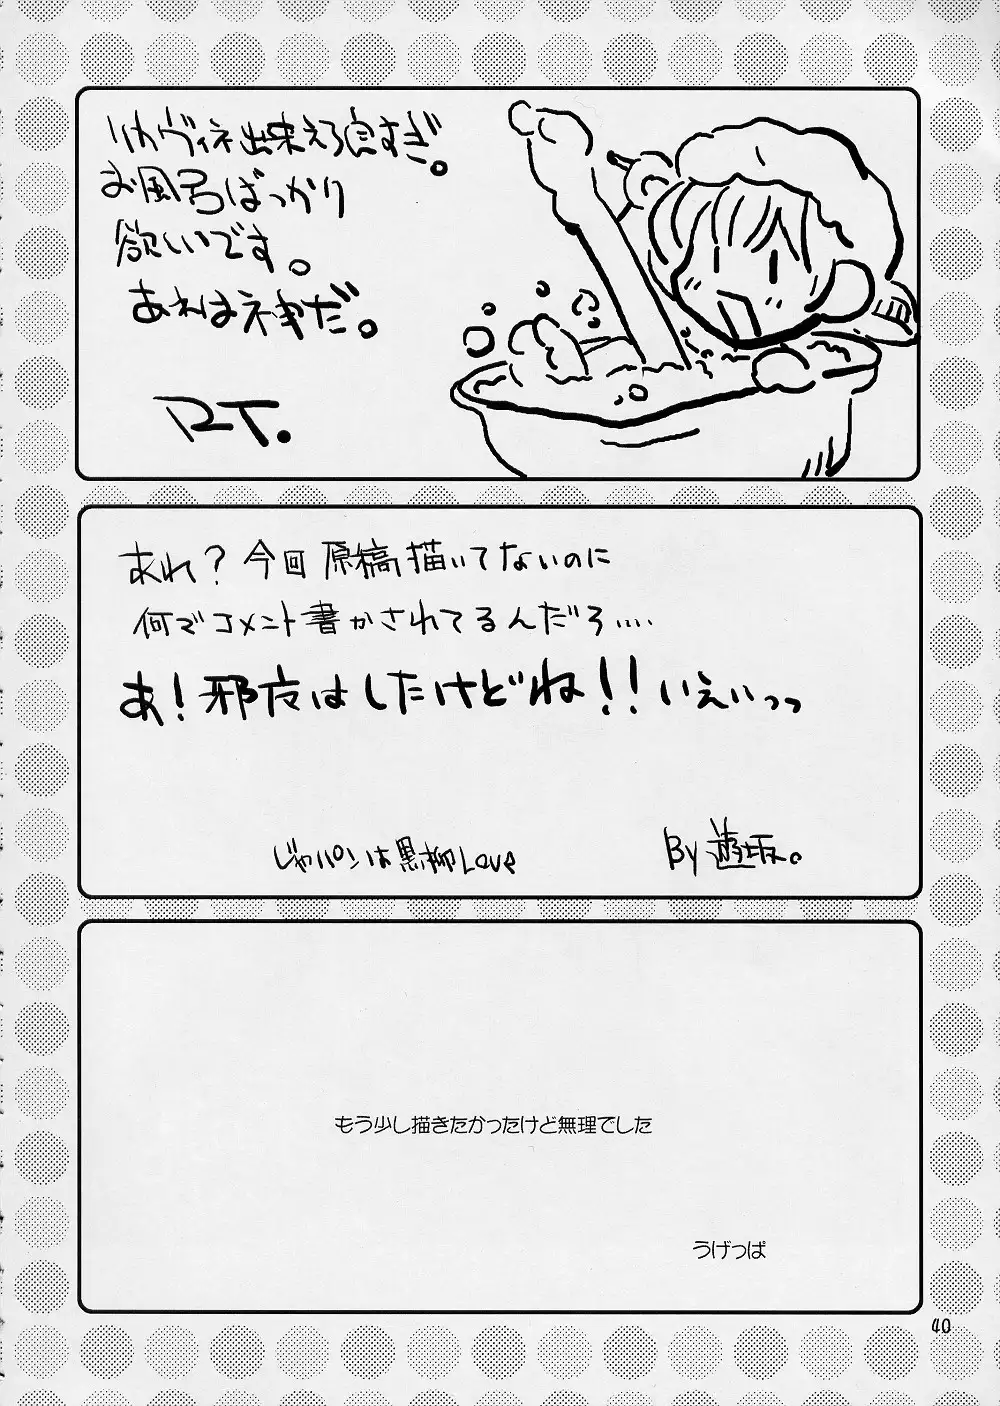 リカヴィネ出来えろ良すぎ。
お風呂ばっかり
欲しいです。
あれは神だ。
RT.
あれ？今回原稿描いてないのに
何でコメント書かされてるんだろ‥‥
あ！邪夜はしたけどね！！いえぃっっ
じゃパンは黒柳Love
By 遊坂。
もう少し描きたかったけど無理でした
うげっぱ
40